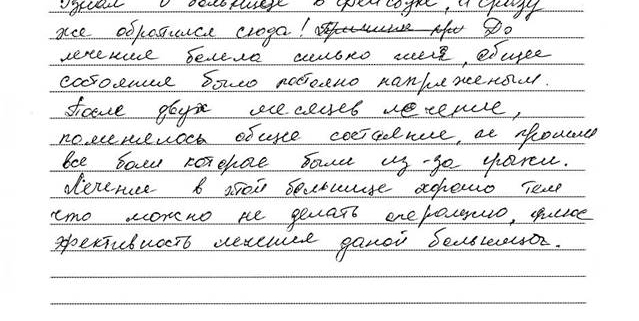 Узнал о больнице в фейсбуке, и сразу
же обротился сюда! До
лечения болела сильно шея, общее
состояния было постояно напряженым.
После двух месяцев лечение,
поменялось общие состаяние, и прошли
все боли которые были из-за грыжи.
Лечение в этой больнице хорошо тем
что можно не делать операцию, плюс
эфективность лечения даной больницы.